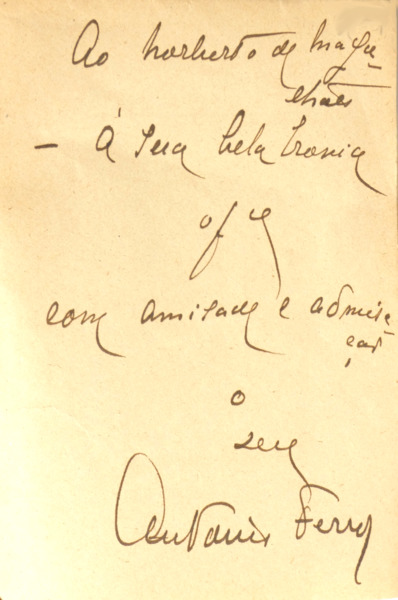 Ao Norberto de Maga-
lhães
– Á sua bela ironia
of ce
com amisade e admira-
ção
o
seu
António Ferro